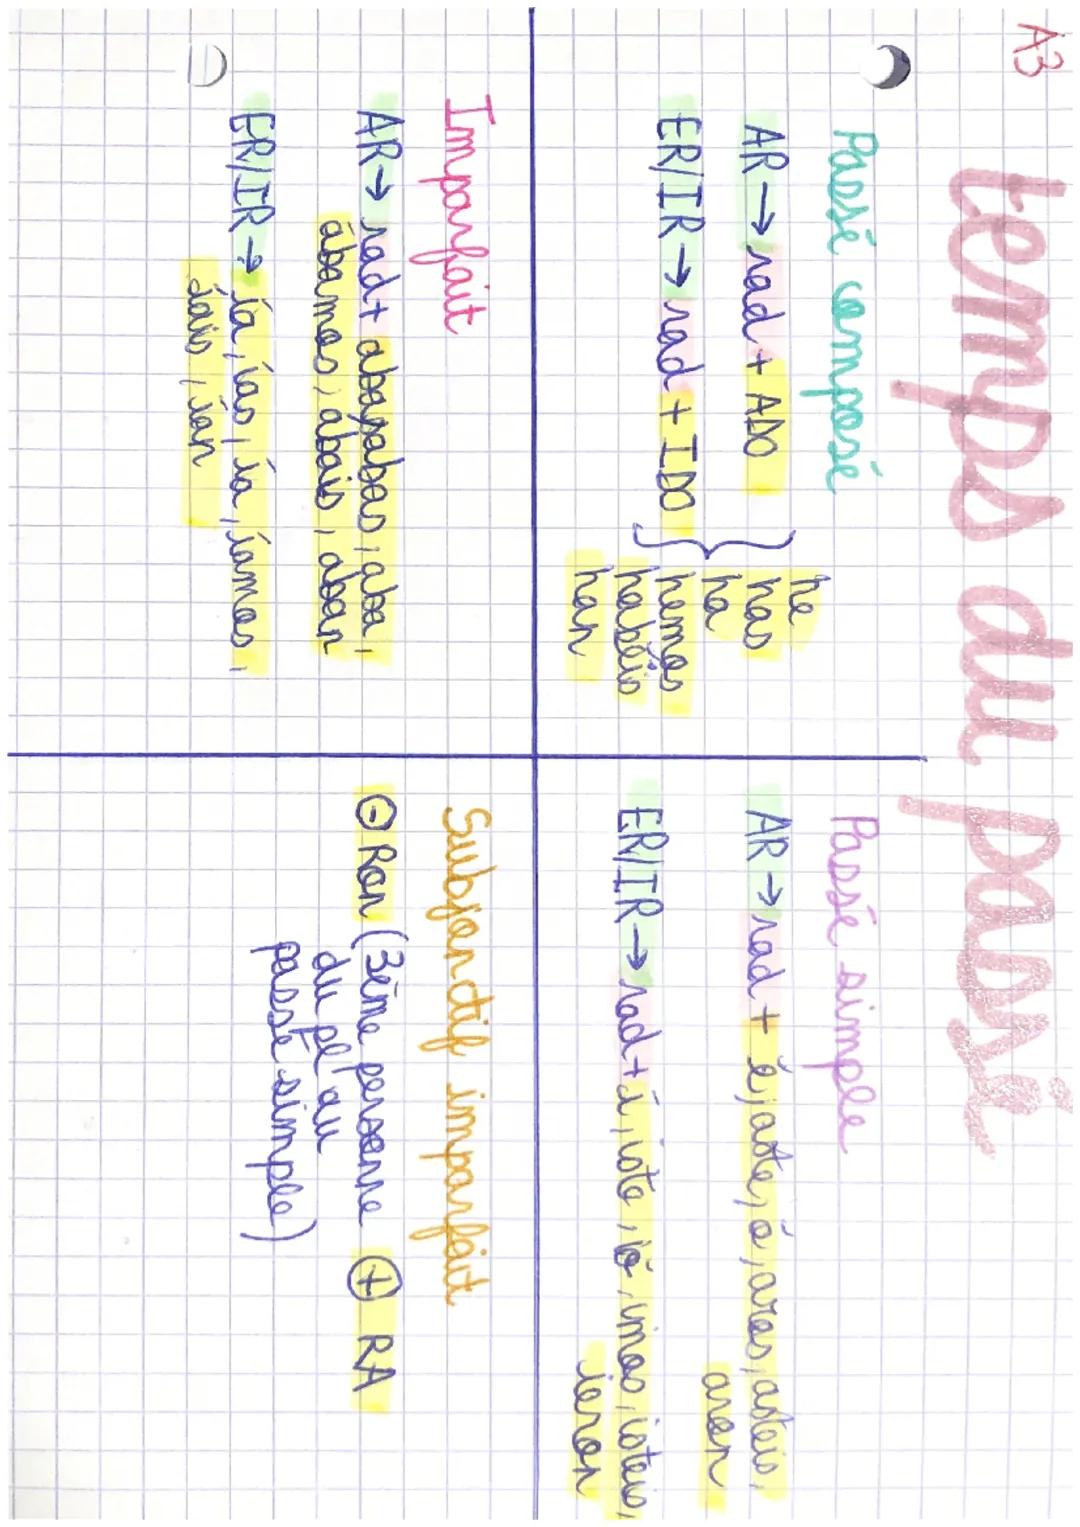 A3
temps du passé
Passé composé
AR → rad + ADO
ER/IR → rad + IDO
he
has
ha
hemos
habéis
han
Passé simple
AR → rad + é, aste, ó, amos, asteis,
aron
ER/IR → rad + í, iste, ió, imos, isteis,
ieron
Imparfait
AR → rad + aba, abas, aba,
ábamos, abais, aban
ER/IR → ía, ías, ía, íamos,
íais, ían
Subjonctif imparfait
⊖ Ron (3ème personne ⊕ RA
du pl au
passé simple)